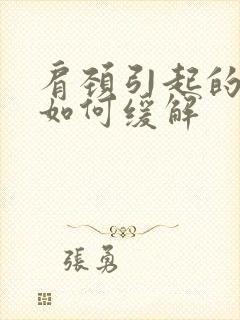 肩颈引起的
如何缓解
張勇